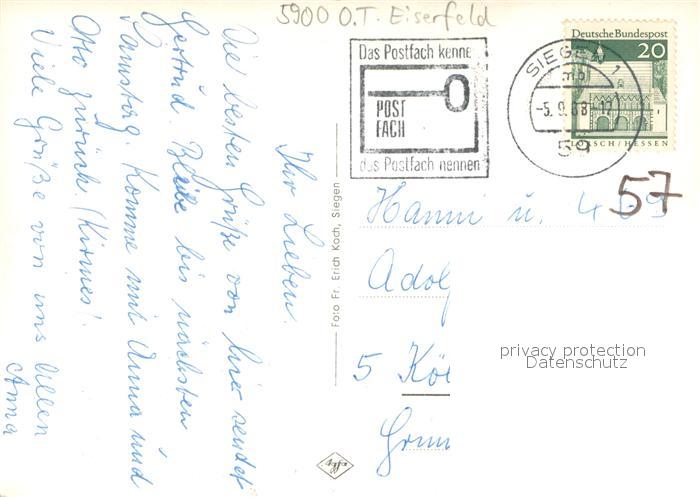 5900 O.T. Eiserfeld
Das Postfach kenne
POST
FACH
das Postfach nennen
SIEGEN 1
mb
-5.9.68-17
59
Deutsche Bundespost
20
LORSCH/HESSEN
Ihr Lieben.
Die besten Grüße von hier sendet
Gertrud. Bleibe bis nächsten
Samstag. Komme mit Anna und
Otto zurück. (Kirmes)!
Viele Grüße von uns allen
Anna
Foto Fr. Erich Koch, Siegen
Agfa
57
Hanni u.
Adol
5 Kö
privacy protection
Datenschutz